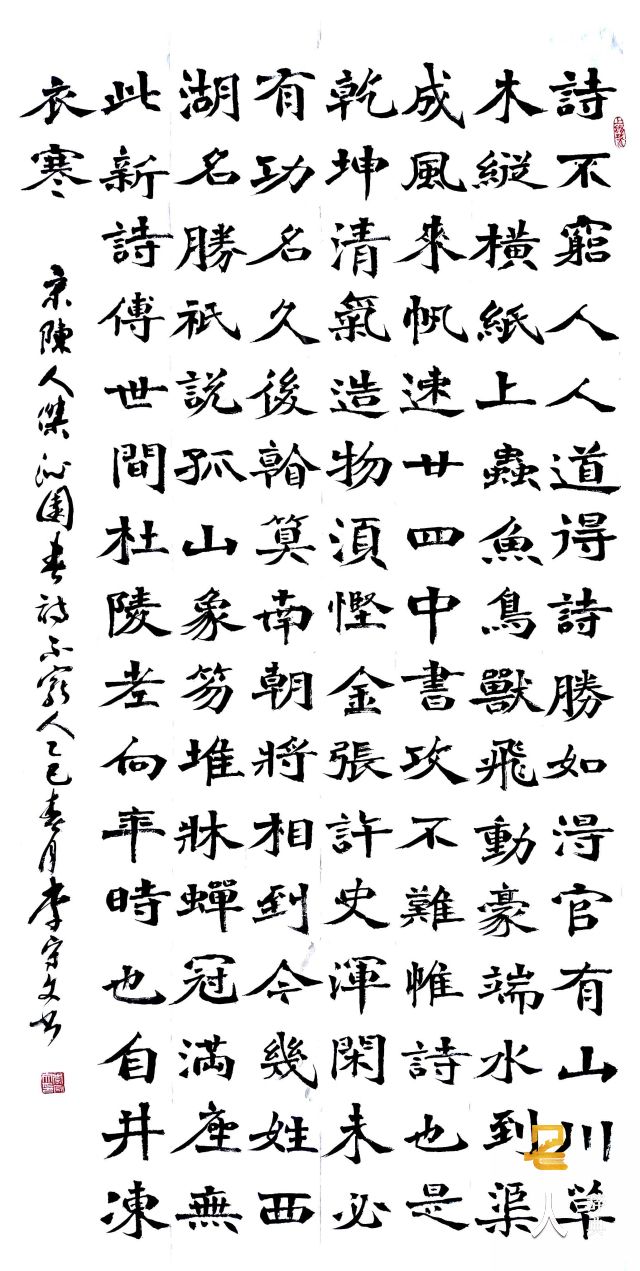 詩不窮人人道得詩勝如得官有山川草
木縱橫紙上蟲魚鳥獸飛動豪端水到渠
成風來帆速廿四中書攷不難惟詩也是
乾坤清氣造物須慳金張許史渾閑未必
有功名久後看算南朝將相到今幾姓西
湖名勝祇說孤山象笏堆牀蟬冠滿座無
此新詩傳世間杜陵老向年時也自井凍
衣寒
宋陳人傑沁園春詩不窮人乙巳春月李守文書